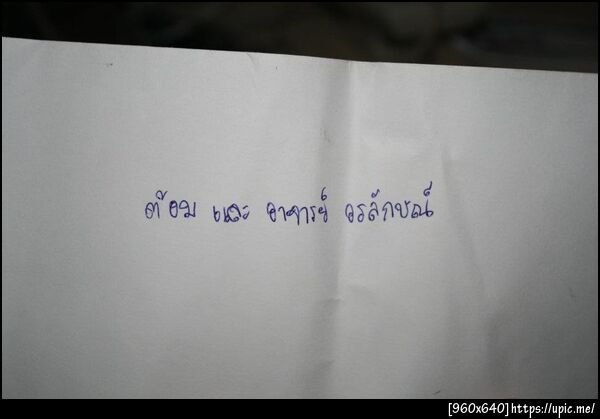 ต้อม และ อาจารย์ วรลักษณ์
[960x640]https://upic.me/